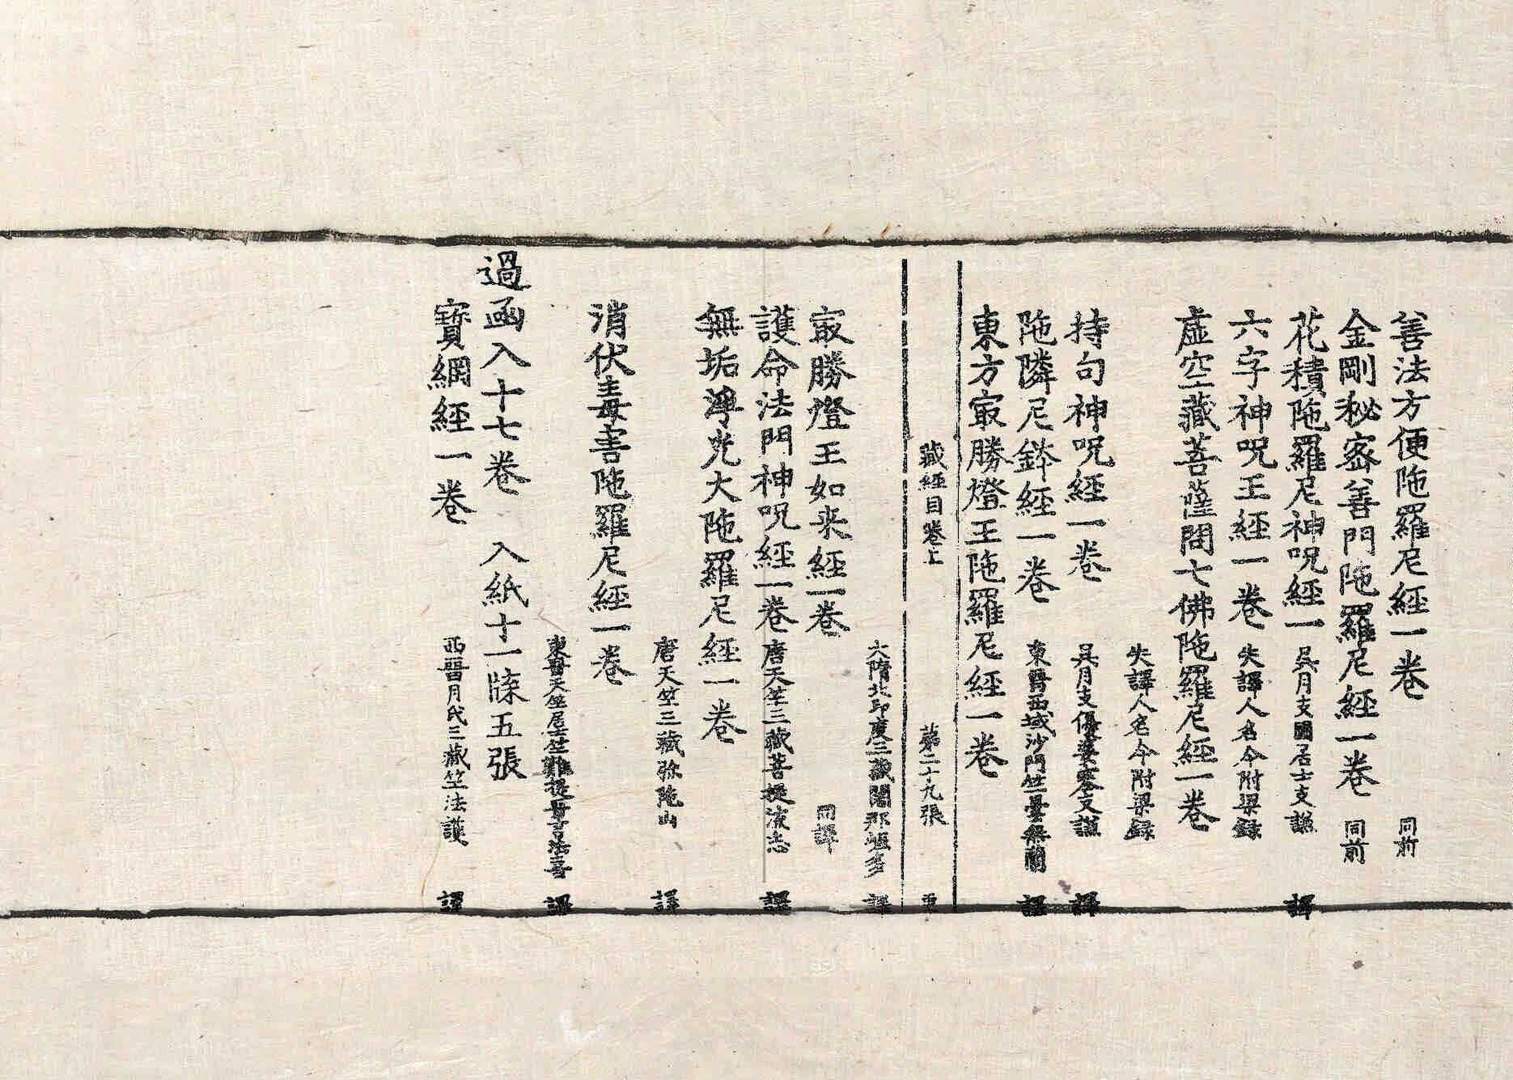 善法方便陁羅尼經一卷 同前
金剛秘密善門陁羅尼經一卷 同前
花積陁羅尼神呪經一 吳月支國居士支謙 譯
六字神呪王經一卷 失譯人名今附梁錄
虛空藏菩薩問七佛陁羅尼經一卷
失譯人名今附梁錄
持句神呪經一卷 吳月支優婆塞支謙 譯
陁隣尼鉢經一卷 東晋西域沙門竺曇無蘭 譯
東方㝡勝燈王陁羅尼經一卷
藏經目卷上 第二十九張 更
大隋北印度三藏闍那崛多 譯
㝡勝燈王如来經一卷 同譯
護命法門神呪經一卷 唐天竺三藏菩提流志 譯
無垢淨光大陁羅尼經一卷
唐天竺三藏弥陁山 譯
消伏毒害陁羅尼經一卷
東晋天竺居士竺難提晋言法喜 譯
過函入十七卷 入紙十一牒五張
寶網經一卷 西晋月氏三藏竺法護 譯